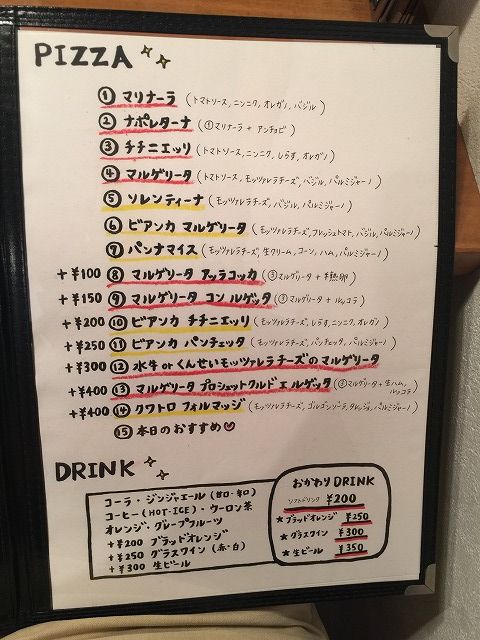 PIZZA
① マリナーラ (トマトソース, ニンニク, オレガノ, バジル)
② ナポレターナ (①マリナーラ + アンチョビ)
③ チチニエッリ (トマトソース, ニンニク, しらす, オレガノ)
④ マルゲリータ (トマトソース, モッツァレラチーズ, バジル, パルミジャーノ)
⑤ ソレンティーナ (モッツァレラチーズ, バジル, パルミジャーノ)
⑥ ビアンカ マルゲリータ (モッツァレラチーズ, フレッシュトマト, バジル, パルミジャーノ)
⑦ パンナマイス (モッツァレラチーズ, 生クリーム, コーン, ハム, パルミジャーノ)
+¥100 ⑧ マルゲリータ アッラコッカ (③マルゲリータ + 半熟卵)
+¥150 ⑨ マルゲリータ コン ルゲッタ (③マルゲリータ + ルッコラ)
+¥200 ⑩ ビアンカ チチニエッリ (モッツァレラチーズ, しらす, ニンニク, オレガノ)
+¥250 ⑪ ビアンカ パンチェッタ (モッツァレラチーズ, パンチェッタ, パルミジャーノ)
+¥300 ⑫ 水牛orくんせいモッツァレラチーズのマルゲリータ
+¥400 ⑬ マルゲリータ プロシェットクルド エ ルゲッタ (③マルゲリータ + 生ハム, ルッコラ)
+¥400 ⑭ クワトロ フォルマッジ (モッツァレラチーズ, ゴルゴンゾーラ, タレッジョ, パルミジャーノ)
⑮ 本日のおすすめ♥
DRINK
コーラ・ジンジャエール (甘口・辛口)
コーヒー (HOT・ICE)・ウーロン茶
オレンジ・グレープフルーツ
+¥200 ブラッドオレンジ
+¥250 グラスワイン (赤・白)
+¥300 生ビール
おかわりDRINK
ソフトドリンク ¥200
★ブラッドオレンジ ¥250
★グラスワイン ¥300
★生ビール ¥350